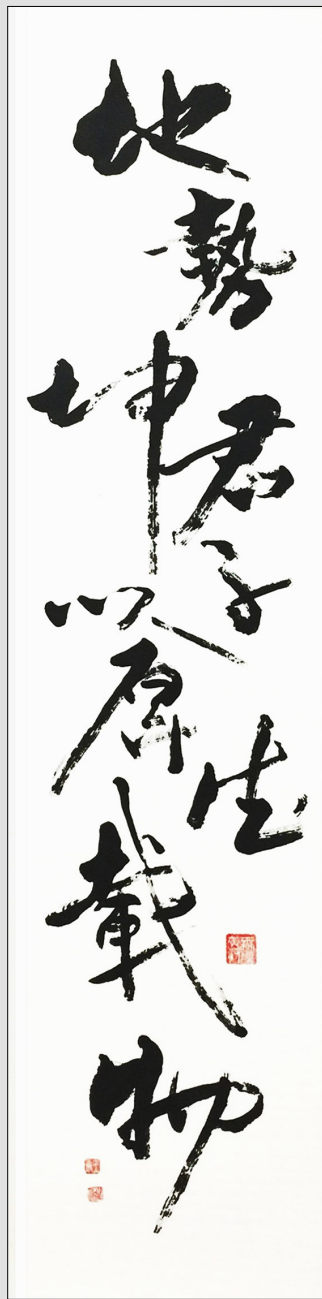 地勢坤君子以厚德載物